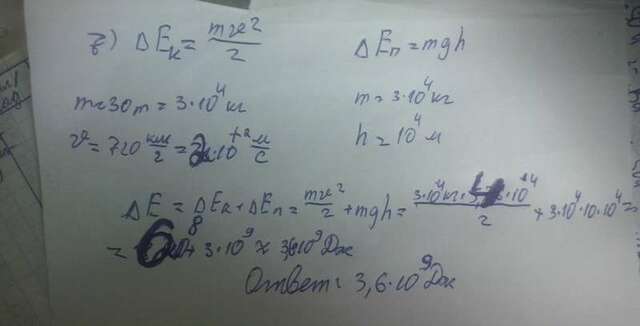 z) ΔEк = mv²/2 ΔEп = mgh
m = 30 т = 3·10⁴ кг m = 3·10⁴ кг
v = 720 км/г = 2·10⁺² м/с h = 10⁴ м
ΔE = ΔEк + ΔEп = mv²/2 + mgh = 3·10⁴ кг· 4 ·10⁴/2 + 3·10⁴·10·10⁴ =
= 6 8 + 3·10⁹ ≈ 3,6·10⁹ Дж
Ответ: 3,6·10⁹ Дж